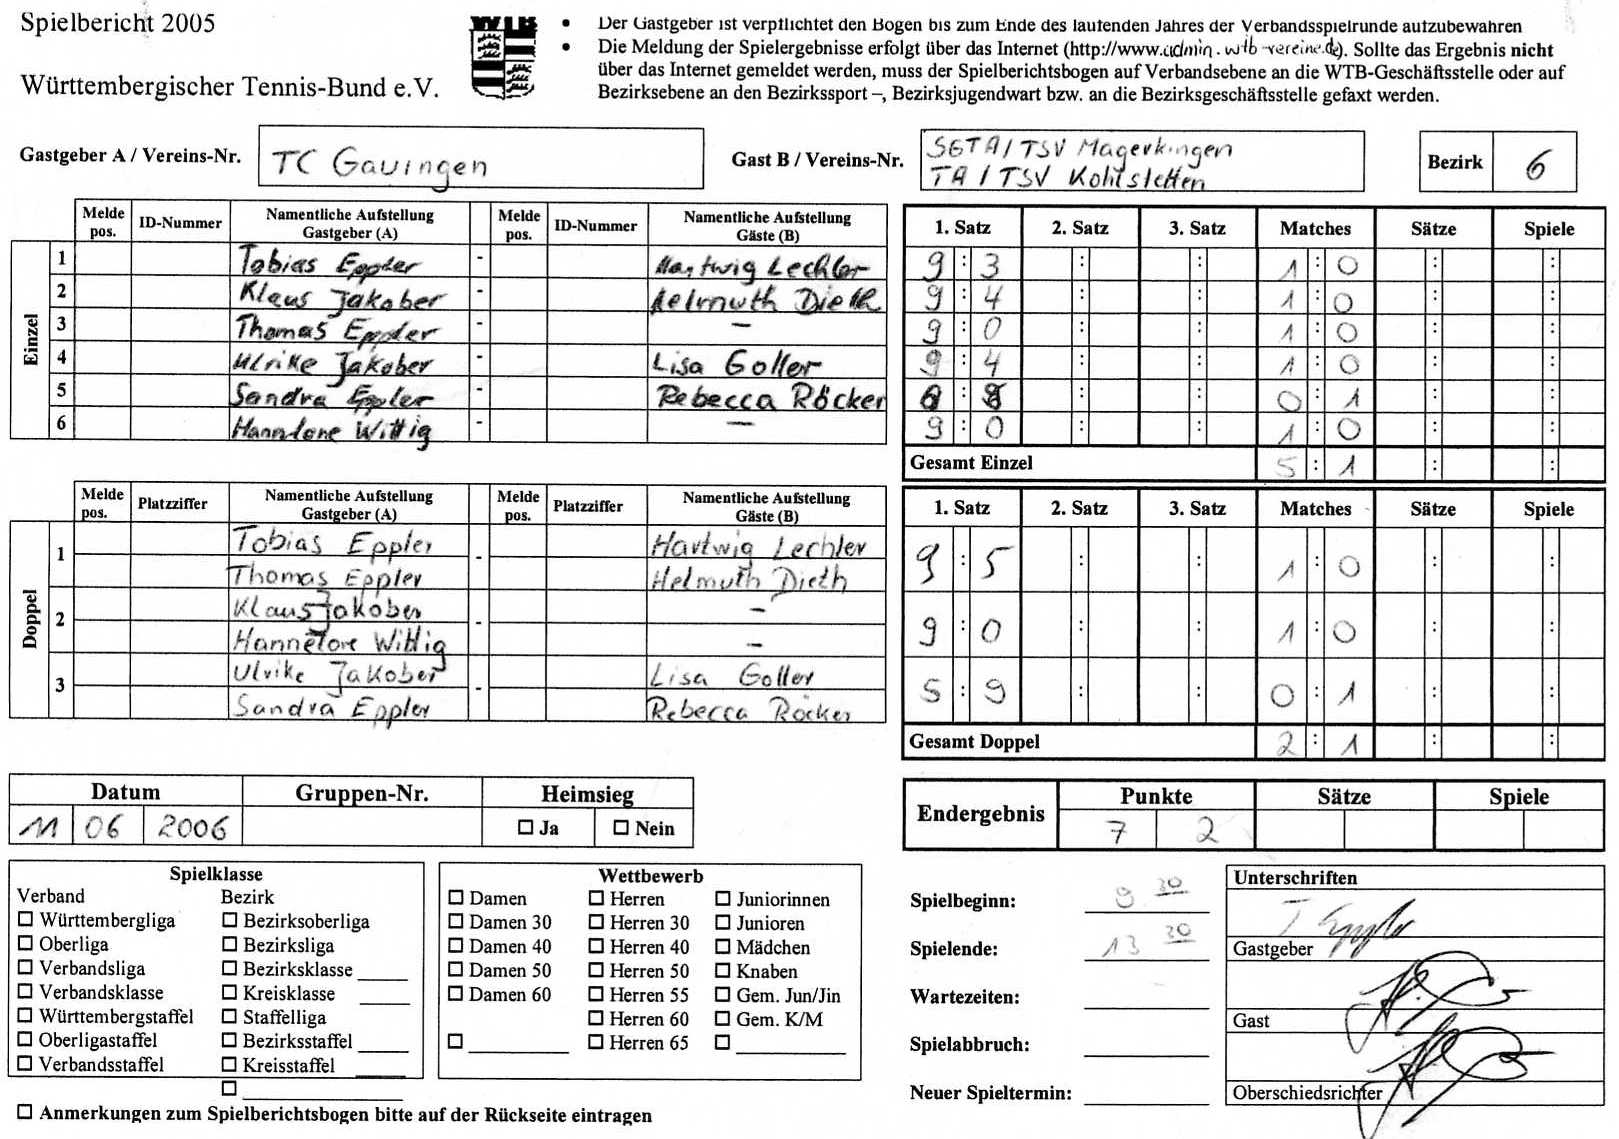 Spielbericht 2005
Württembergischer Tennis-Bund e.V.
WTB
• Der Gastgeber ist verpflichtet den Bogen bis zum Ende des laufenden Jahres der Verbandsspielrunde aufzubewahren
• Die Meldung der Spielergebnisse erfolgt über das Internet (http://www.admin.wtb-vereine.de). Sollte das Ergebnis nicht
über das Internet gemeldet werden, muss der Spielberichtsbogen auf Verbandsebene an die WTB-Geschäftsstelle oder auf
Bezirksebene an den Bezirkssport –, Bezirksjugendwart bzw. an die Bezirksgeschäftsstelle gefaxt werden.
Gastgeber A / Vereins-Nr. TC Gauingen
Gast B / Vereins-Nr. SGTA/TSV Magerkingen
TA/TSV Kohlstetten
Bezirk 6
Melde pos. ID-Nummer Namentliche Aufstellung Gastgeber (A) Melde pos. ID-Nummer Namentliche Aufstellung Gäste (B) 1. Satz 2. Satz 3. Satz Matches Sätze Spiele
Einzel
1 Tobias Eppler - Hartwig Lechler 9 : 3 : : 1 : 0 : :
2 Klaus Jakober - Helmuth Dieth 9 : 4 : : 1 : 0 : :
3 Thomas Eppler - — 9 : 0 : : 1 : 0 : :
4 Ulrike Jakober - Lisa Goller 9 : 4 : : 1 : 0 : :
5 Sandra Eppler - Rebecca Röcker : : : 0 : 1 : :
6 Hannelore Wittig - — 9 : 0 : : 1 : 0 : :
Gesamt Einzel 5 : 1 : :
Melde pos. Platzziffer Namentliche Aufstellung Gastgeber (A) Melde pos. Platzziffer Namentliche Aufstellung Gäste (B) 1. Satz 2. Satz 3. Satz Matches Sätze Spiele
Doppel
1 Tobias Eppler - Hartwig Lechler 9 : 5 : : 1 : 0 : :
Thomas Eppler Helmuth Dieth
2 Klaus Jakober - — 9 : 0 : : 1 : 0 : :
Hannelore Wittig —
3 Ulrike Jakober - Lisa Goller 5 : 9 : : 0 : 1 : :
Sandra Eppler Rebecca Röcker
Gesamt Doppel 2 : 1 : :
Datum Gruppen-Nr. Heimsieg
11 06 2006 ☐ Ja ☐ Nein
Endergebnis Punkte Sätze Spiele
7 2
Spielklasse
Verband Bezirk
☐ Württembergliga ☐ Bezirksoberliga
☐ Oberliga ☐ Bezirksliga
☐ Verbandsliga ☐ Bezirksklasse
☐ Verbandsklasse ☐ Kreisklasse
☐ Württembergstaffel ☐ Staffelliga
☐ Oberligastaffel ☐ Bezirksstaffel
☐ Verbandsstaffel ☐ Kreisstaffel
☐
Wettbewerb
☐ Damen ☐ Herren ☐ Juniorinnen
☐ Damen 30 ☐ Herren 30 ☐ Junioren
☐ Damen 40 ☐ Herren 40 ☐ Mädchen
☐ Damen 50 ☐ Herren 50 ☐ Knaben
☐ Damen 60 ☐ Herren 55 ☐ Gem. Jun/Jin
☐ Herren 60 ☐ Gem. K/M
☐ ☐ Herren 65 ☐
Spielbeginn: 9 30
Spielende: 13 30
Wartezeiten:
Spielabbruch:
Neuer Spieltermin:
Unterschriften
T Eppler
Gastgeber
Gast
Oberschiedsrichter
☐ Anmerkungen zum Spielberichtsbogen bitte auf der Rückseite eintragen